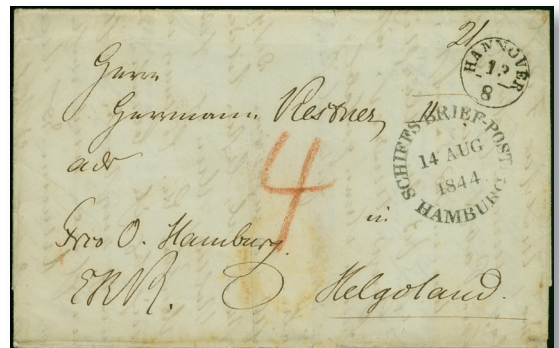 HANNOVER
13
8
SCHIFFS BRIEF-POST
14 AUG
1844
HAMBURG
Herrn
Herrmann Kestner
4
in
Hamburg.
Helgoland.